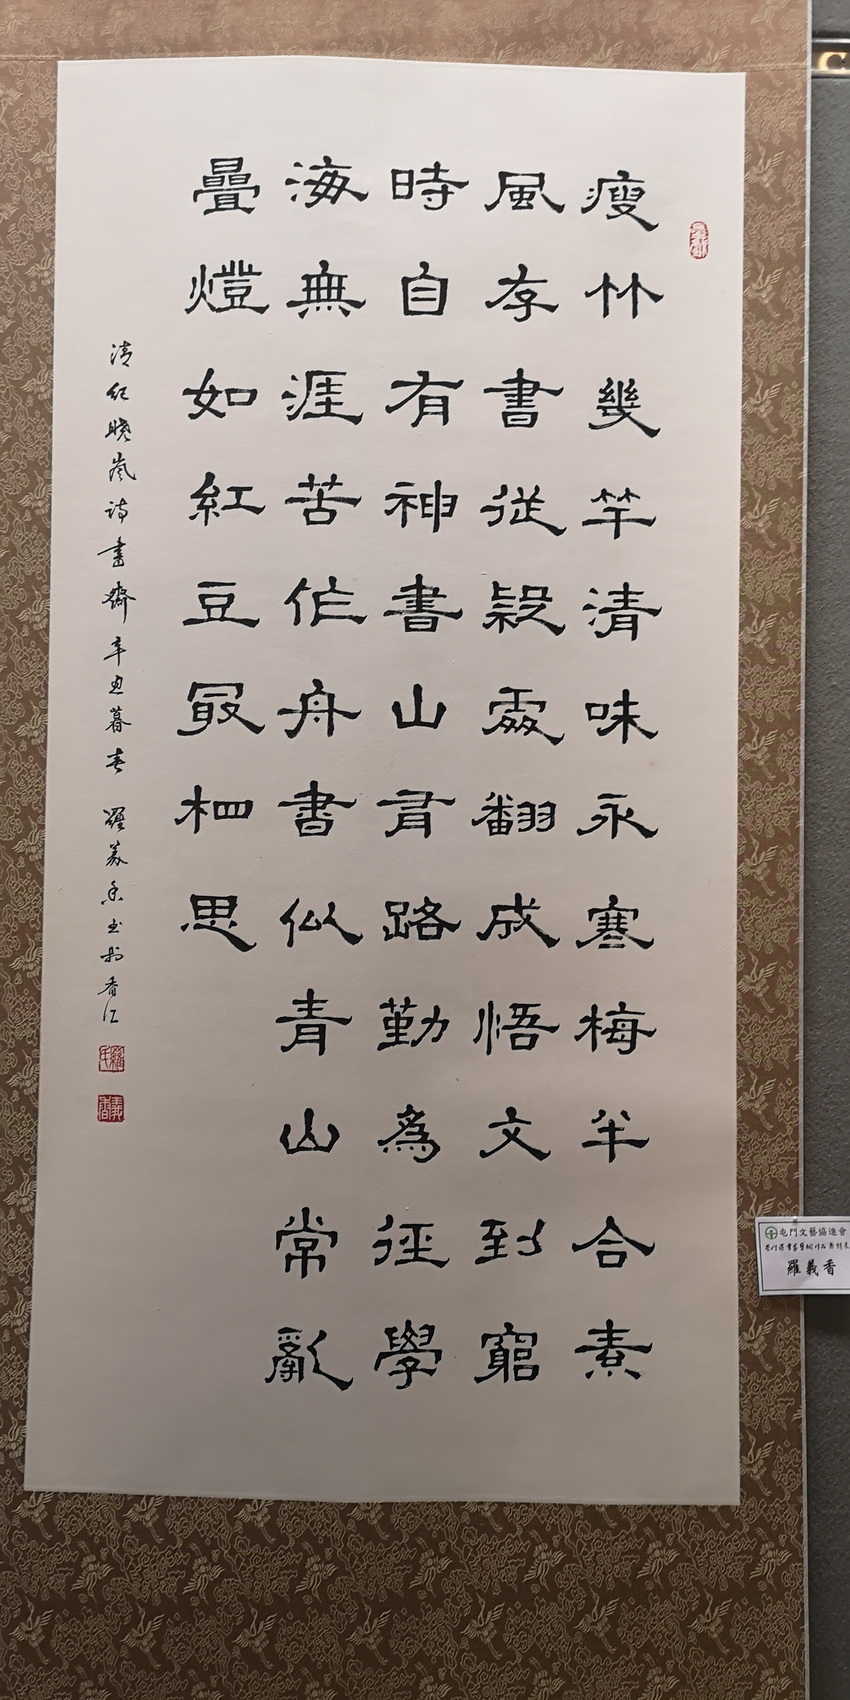 瘦竹幾竿清味永寒梅半合素
風存書從疑處翻成悟文到窮
時自有神書山有路勤為徑學
海無涯苦作舟書似青山常亂
疊燈如紅豆最相思
清紀曉嵐詩書齋辛丑暮春 羅義香書於香江
屯門文藝協進會
羅義香